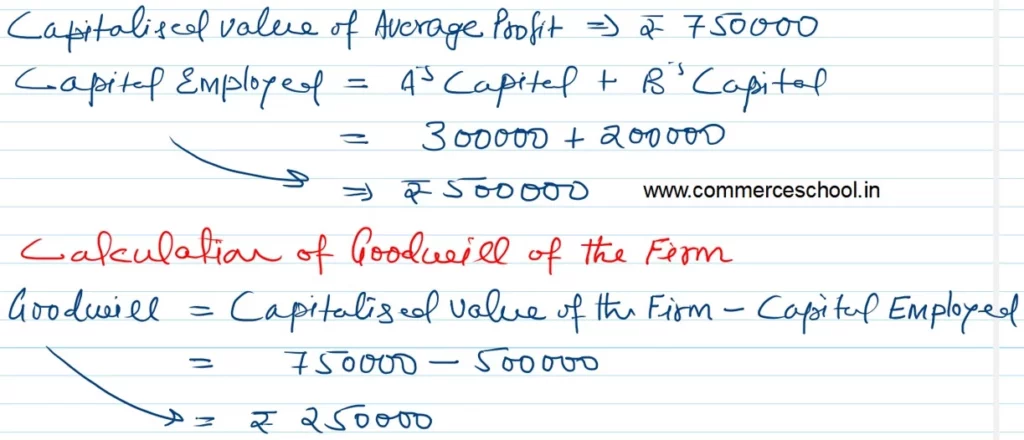 Capitalised value of Average Profit ⇒ ₹ 750000
Capital Employed = A's Capital + B's Capital
= 300000 + 200000
⇒ ₹ 500000 www.commerceschool.in
Calculation of Goodwill of the Firm
Goodwill = Capitalised value of the Firm - Capital Employed
= 750000 - 500000
= ₹ 250000